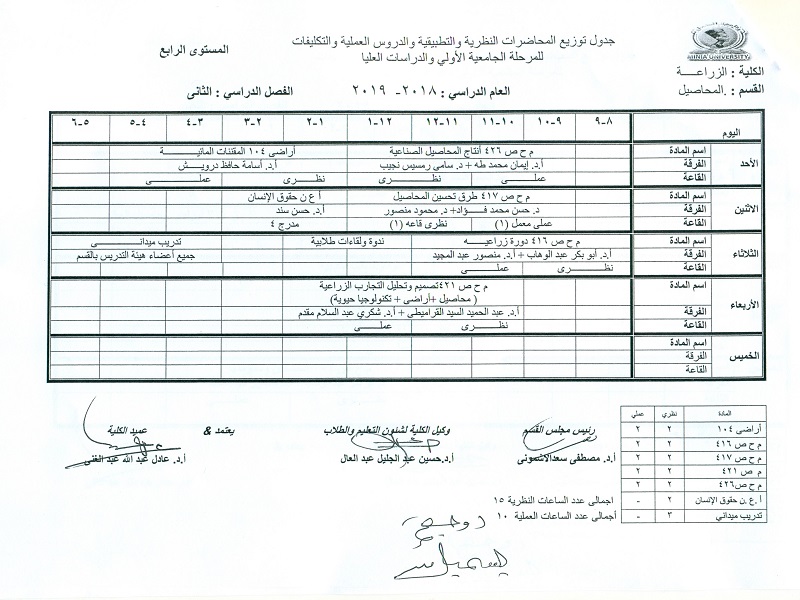 جدول توزيع المحاضرات النظرية والتطبيقية والدروس العملية والتكليفات
للمرحلة الجامعية الأولي والدراسات العليا
المستوى الرابع
MINIA UNIVERSITY
الكلية : الزراعـــــة
القسم : .المحاصيل
العام الدراسي : ٢٠١٨- ٢٠١٩
الفصل الدراسي : الثانى
اليوم ٩-٨ ١٠-٩ ١١-١٠ ١٢-١١ ١-١٢ ٢-١ ٣-٢ ٤-٣ ٥-٤ ٦-٥
الأحد
اسم المادة م ح ص ٤٢٦ أنتاج المحاصيل الصناعية أراضى ١٠٤ المقننات المائيـــــــة
الفرقة أ.د. إيمان محمد طه + د. سامى رمسيس نجيب أ.د. أسامة حافظ درويــــش
القاعة عملـــــى نظــــرى نظــــرى عملــــى
الاثنين
اسم المادة م ح ص ٤١٧ طرق تحسين المحاصيل أ ع ن حقوق الإنسان
الفرقة د. حسن محمد فــــؤاد+ د. محمود منصور أ.د. حسن سند
القاعة عملى معمل (١) نظرى قاعه (١) مدرج ٤
الثلاثاء
اسم المادة م ح ص ٤١٦ دورة زراعيـــــه ندوة ولقاءات طلابية تدريب ميدانــــــى
الفرقة أ.د. أبو بكر عبد الوهاب + أ.د. منصور عبد المجيد جميع أعضاء هيئة التدريس بالقسم
القاعة نظــــــرى عملـــــى
الأربعاء
اسم المادة م ح ص ٤٢١تصميم وتحليل التجارب الزراعية
( محاصيل +أراضى + تكنولوجيا حيوية)
الفرقة أ.د. عبد الحميد السيد القراميطى + أ.د. شكري عبد السلام مقدم
القاعة نظــــرى عملــــى
الخميس
اسم المادة
الفرقة
القاعة
رئيس مجلس القسم
أ.د. مصطفى سعدالاشمونى
وكيل الكلية لشئون التعليم والطلاب
أ.د.حسين عبد الجليل عبد العال
يعتمد &
عميد الكلية
أ.د. عادل عبد الله عبد الغنى
المادة نظري عملي
أراضى ١٠٤ ٢ ٢
م ح ص ٤١٦ ٢ ٢
م ح ص ٤١٧ ٢ ٢
م ص ٤٢١ ٢ ٢
م ح ص٤٢٦ ٢ ٢
أ .ع .ن حقوق الإنسان ٢ -
تدريب ميداني ٣ -
اجمالى عدد الساعات النظرية ١٥
أجمالى عدد الساعات العملية ١٠